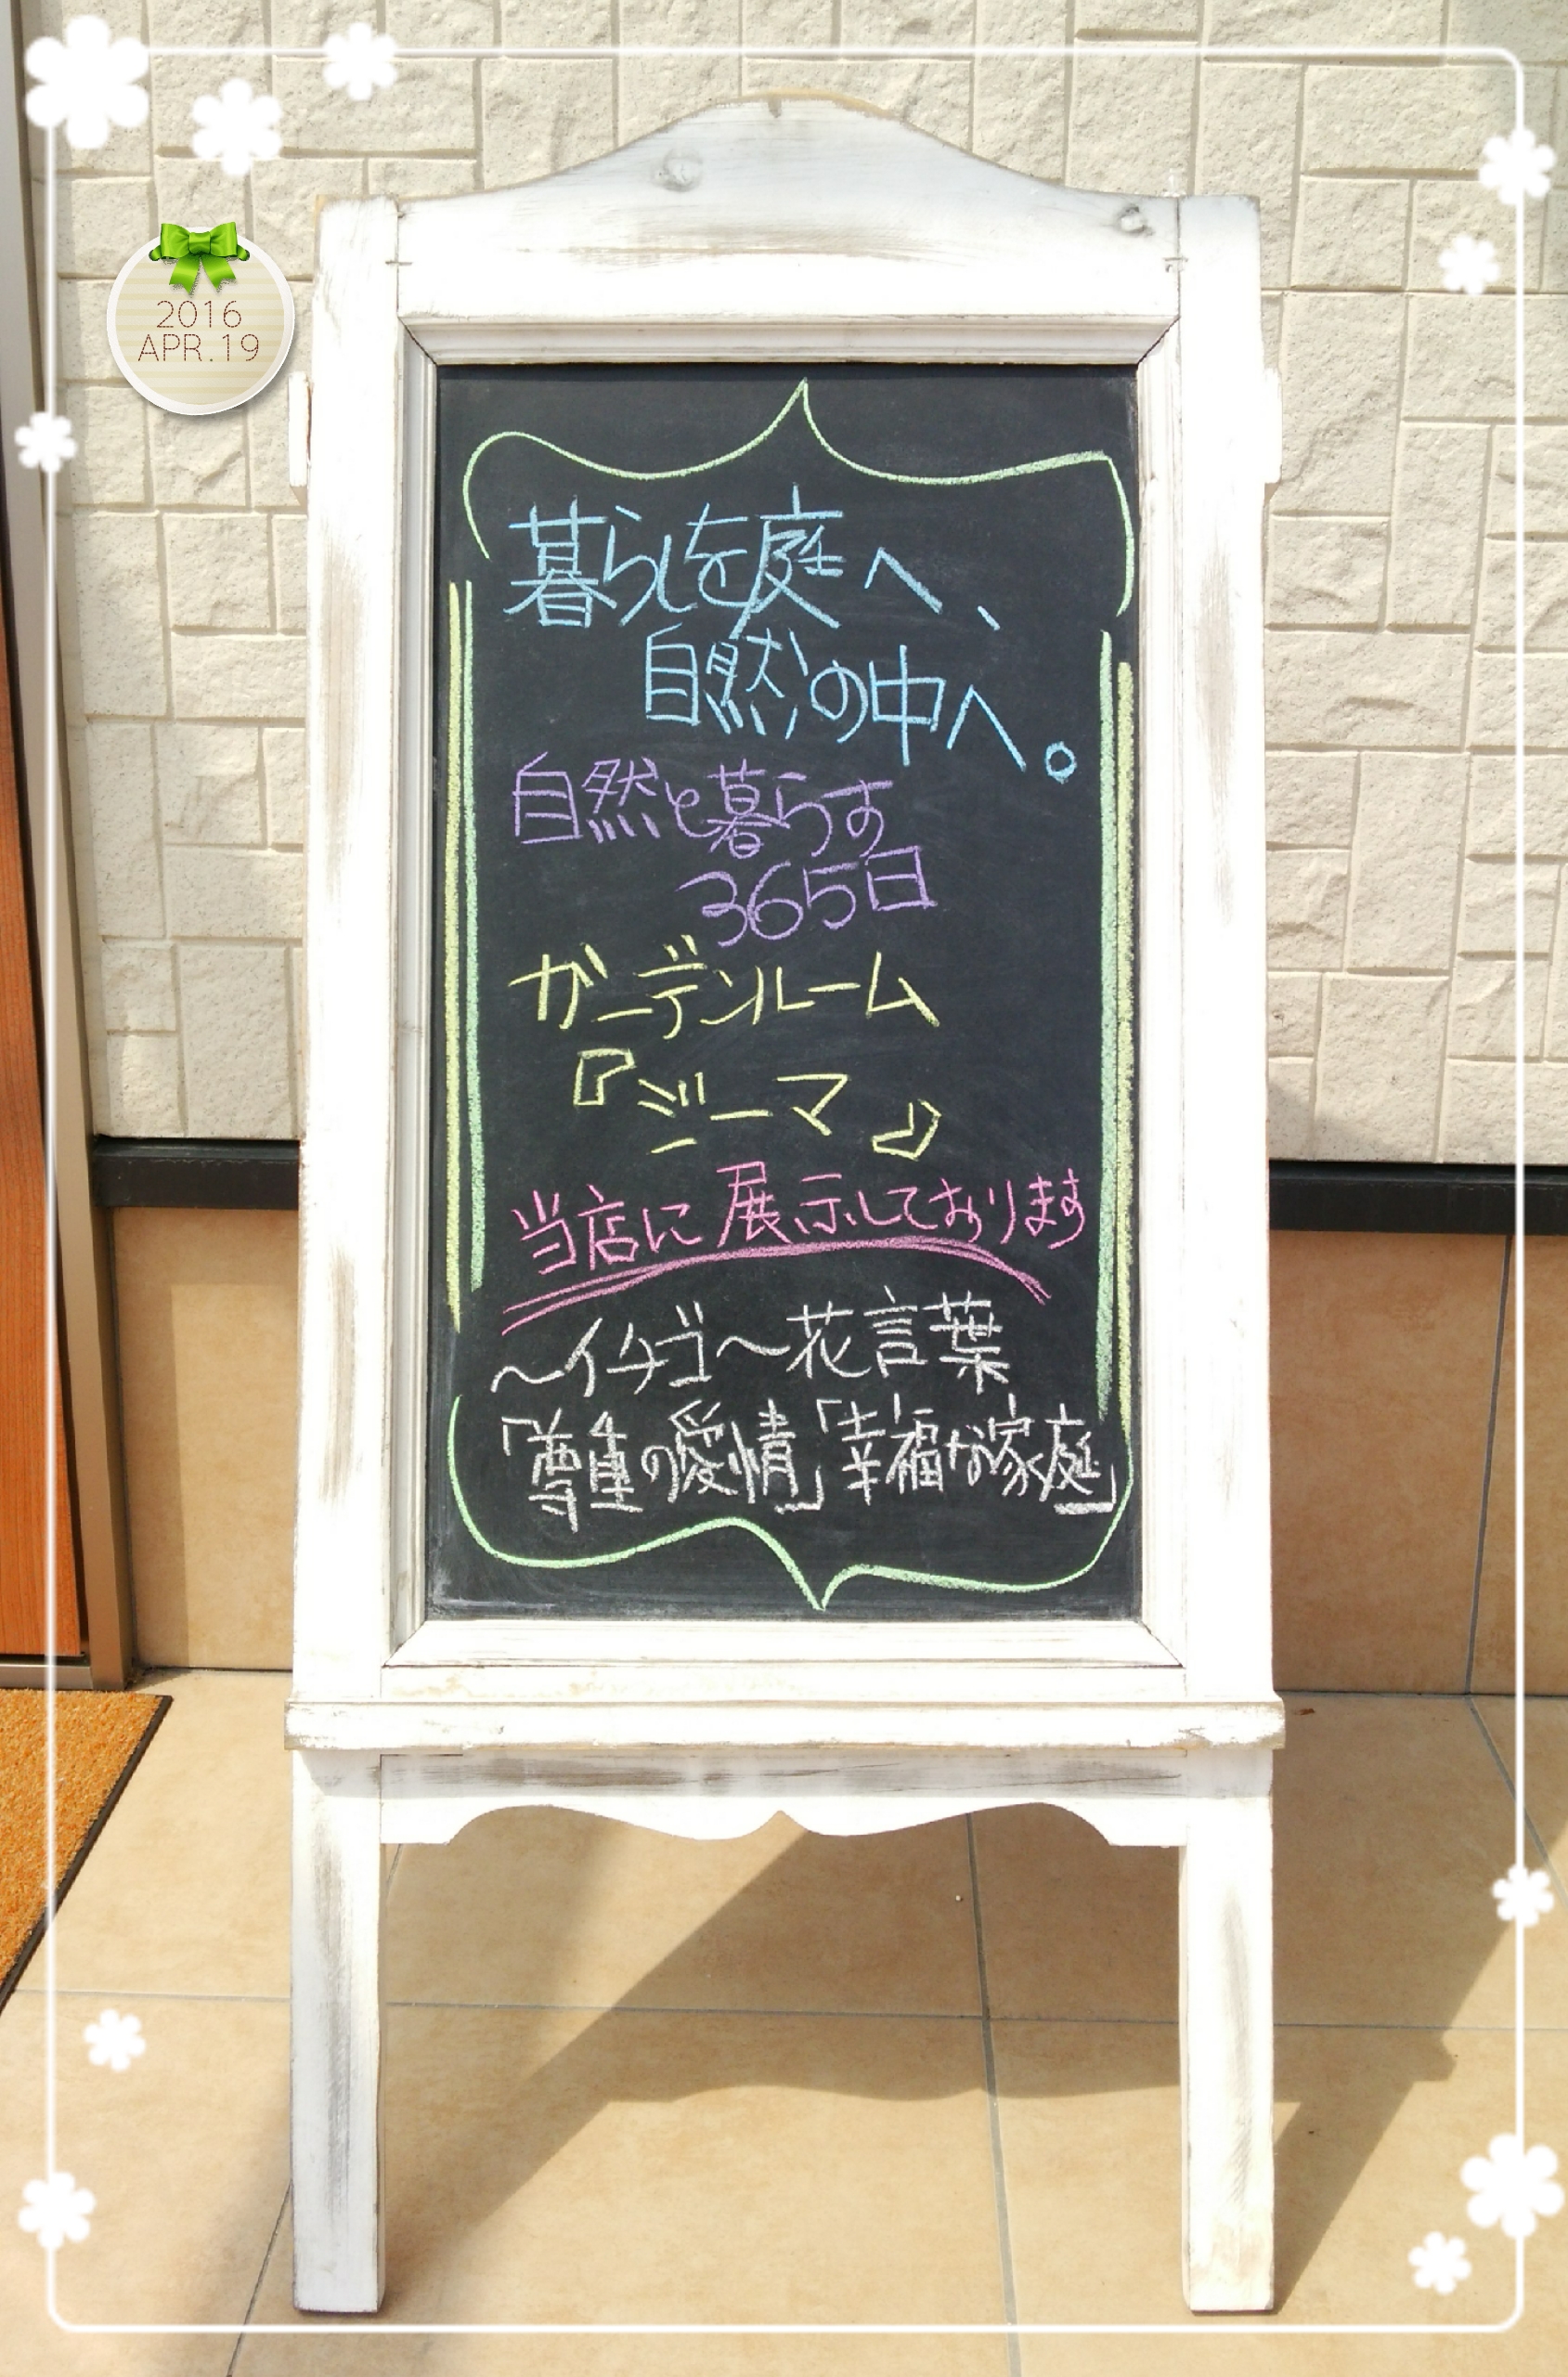 2016
APR.19
暮らしを庭へ、
自然の中へ。
自然と暮らす
365日
ガーデンルーム
『ジーマ』
当店に展示しております
～イチゴ～花言葉
「尊重の愛情」「幸福な家庭」